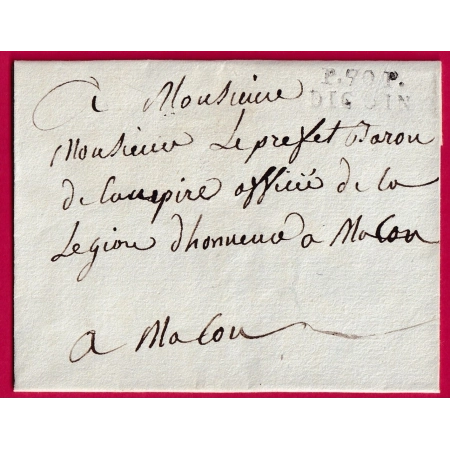 P.70.P.
DIGOIN
A Monsieur
Monsieur Le prefet Baron
de L'anpire officié de la
Legion d'honneur a Macon
a Macon